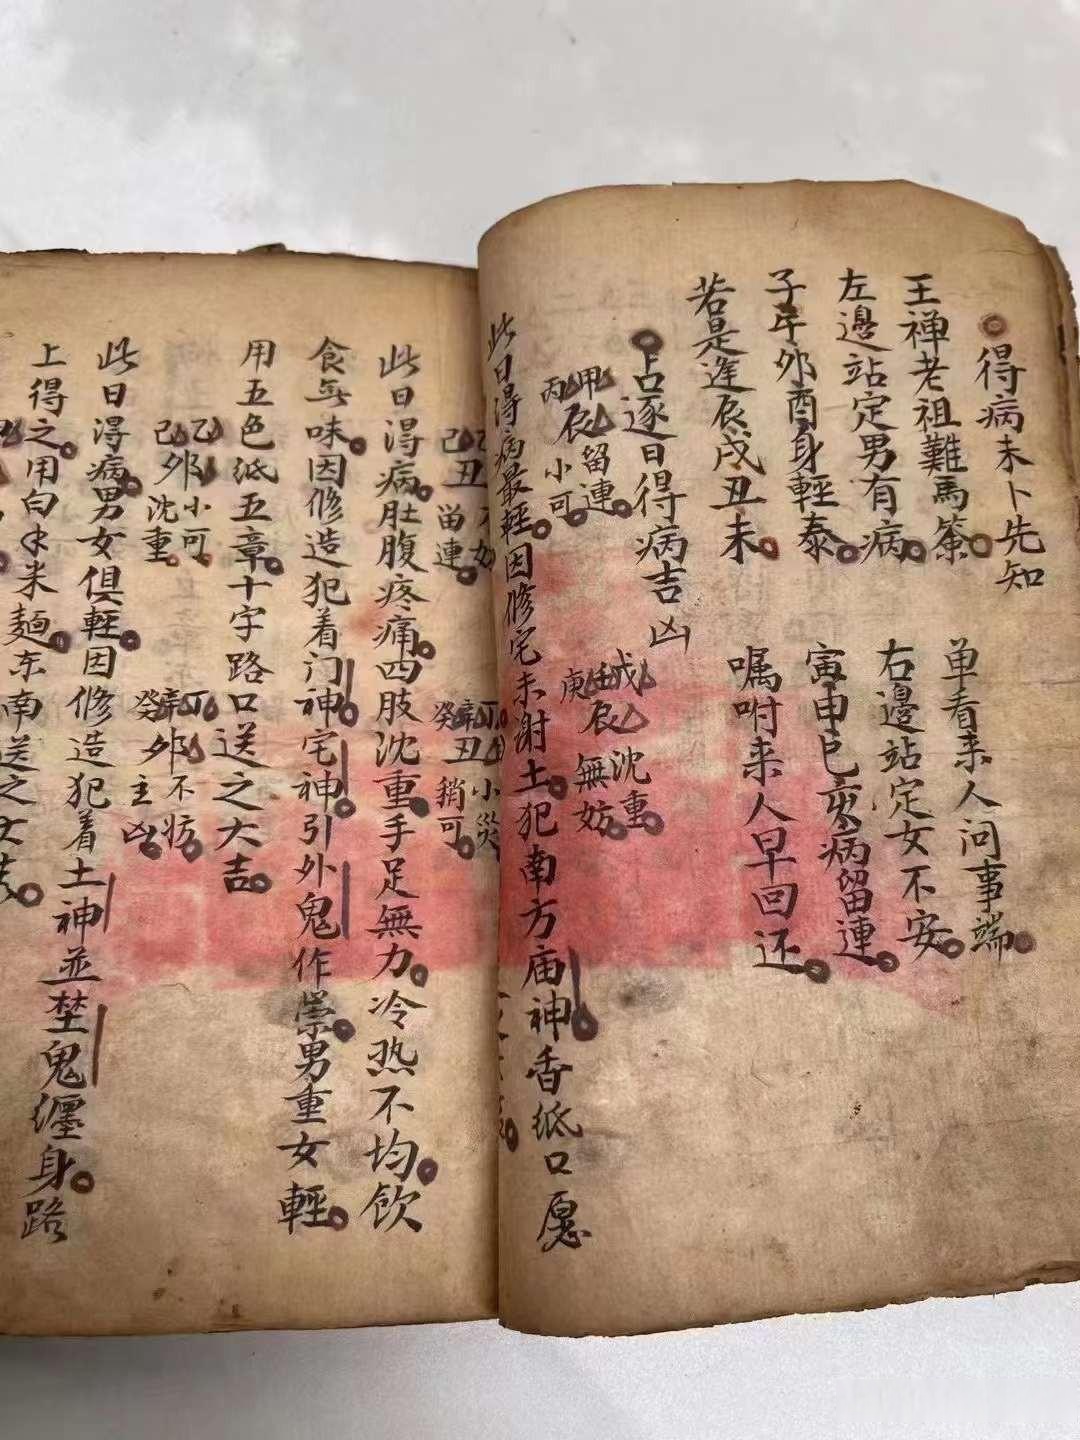 得病未卜先知
王禅老祖難馬策 单看来人问事端
左邊站定男有病 右邊站定女不安
子午夘酉身輕泰 寅申巳亥病留連
若是逢辰戌丑未 嘱咐来人早回还
占逐日得病吉凶
甲辰留連 戊辰沈重
丙 小可 壬
庚 無妨
此日得病最輕因修宅未谢土犯南方庙神香纸口愿
乙 丁 小災
己丑留連 辛丑
癸 稍可
此日得病肚腹疼痛四肢沈重手足無力冷热不均飲
食無味因修造犯着门神宅神引外鬼作祟男重女輕
用五色纸五章十字路口送之大吉
乙夘小可 丁夘不妨
己 沈重 辛
癸 主凶
此日得病男女俱輕因修造犯着土神並埜鬼缠身路
上得之用白米麺东南送之大吉